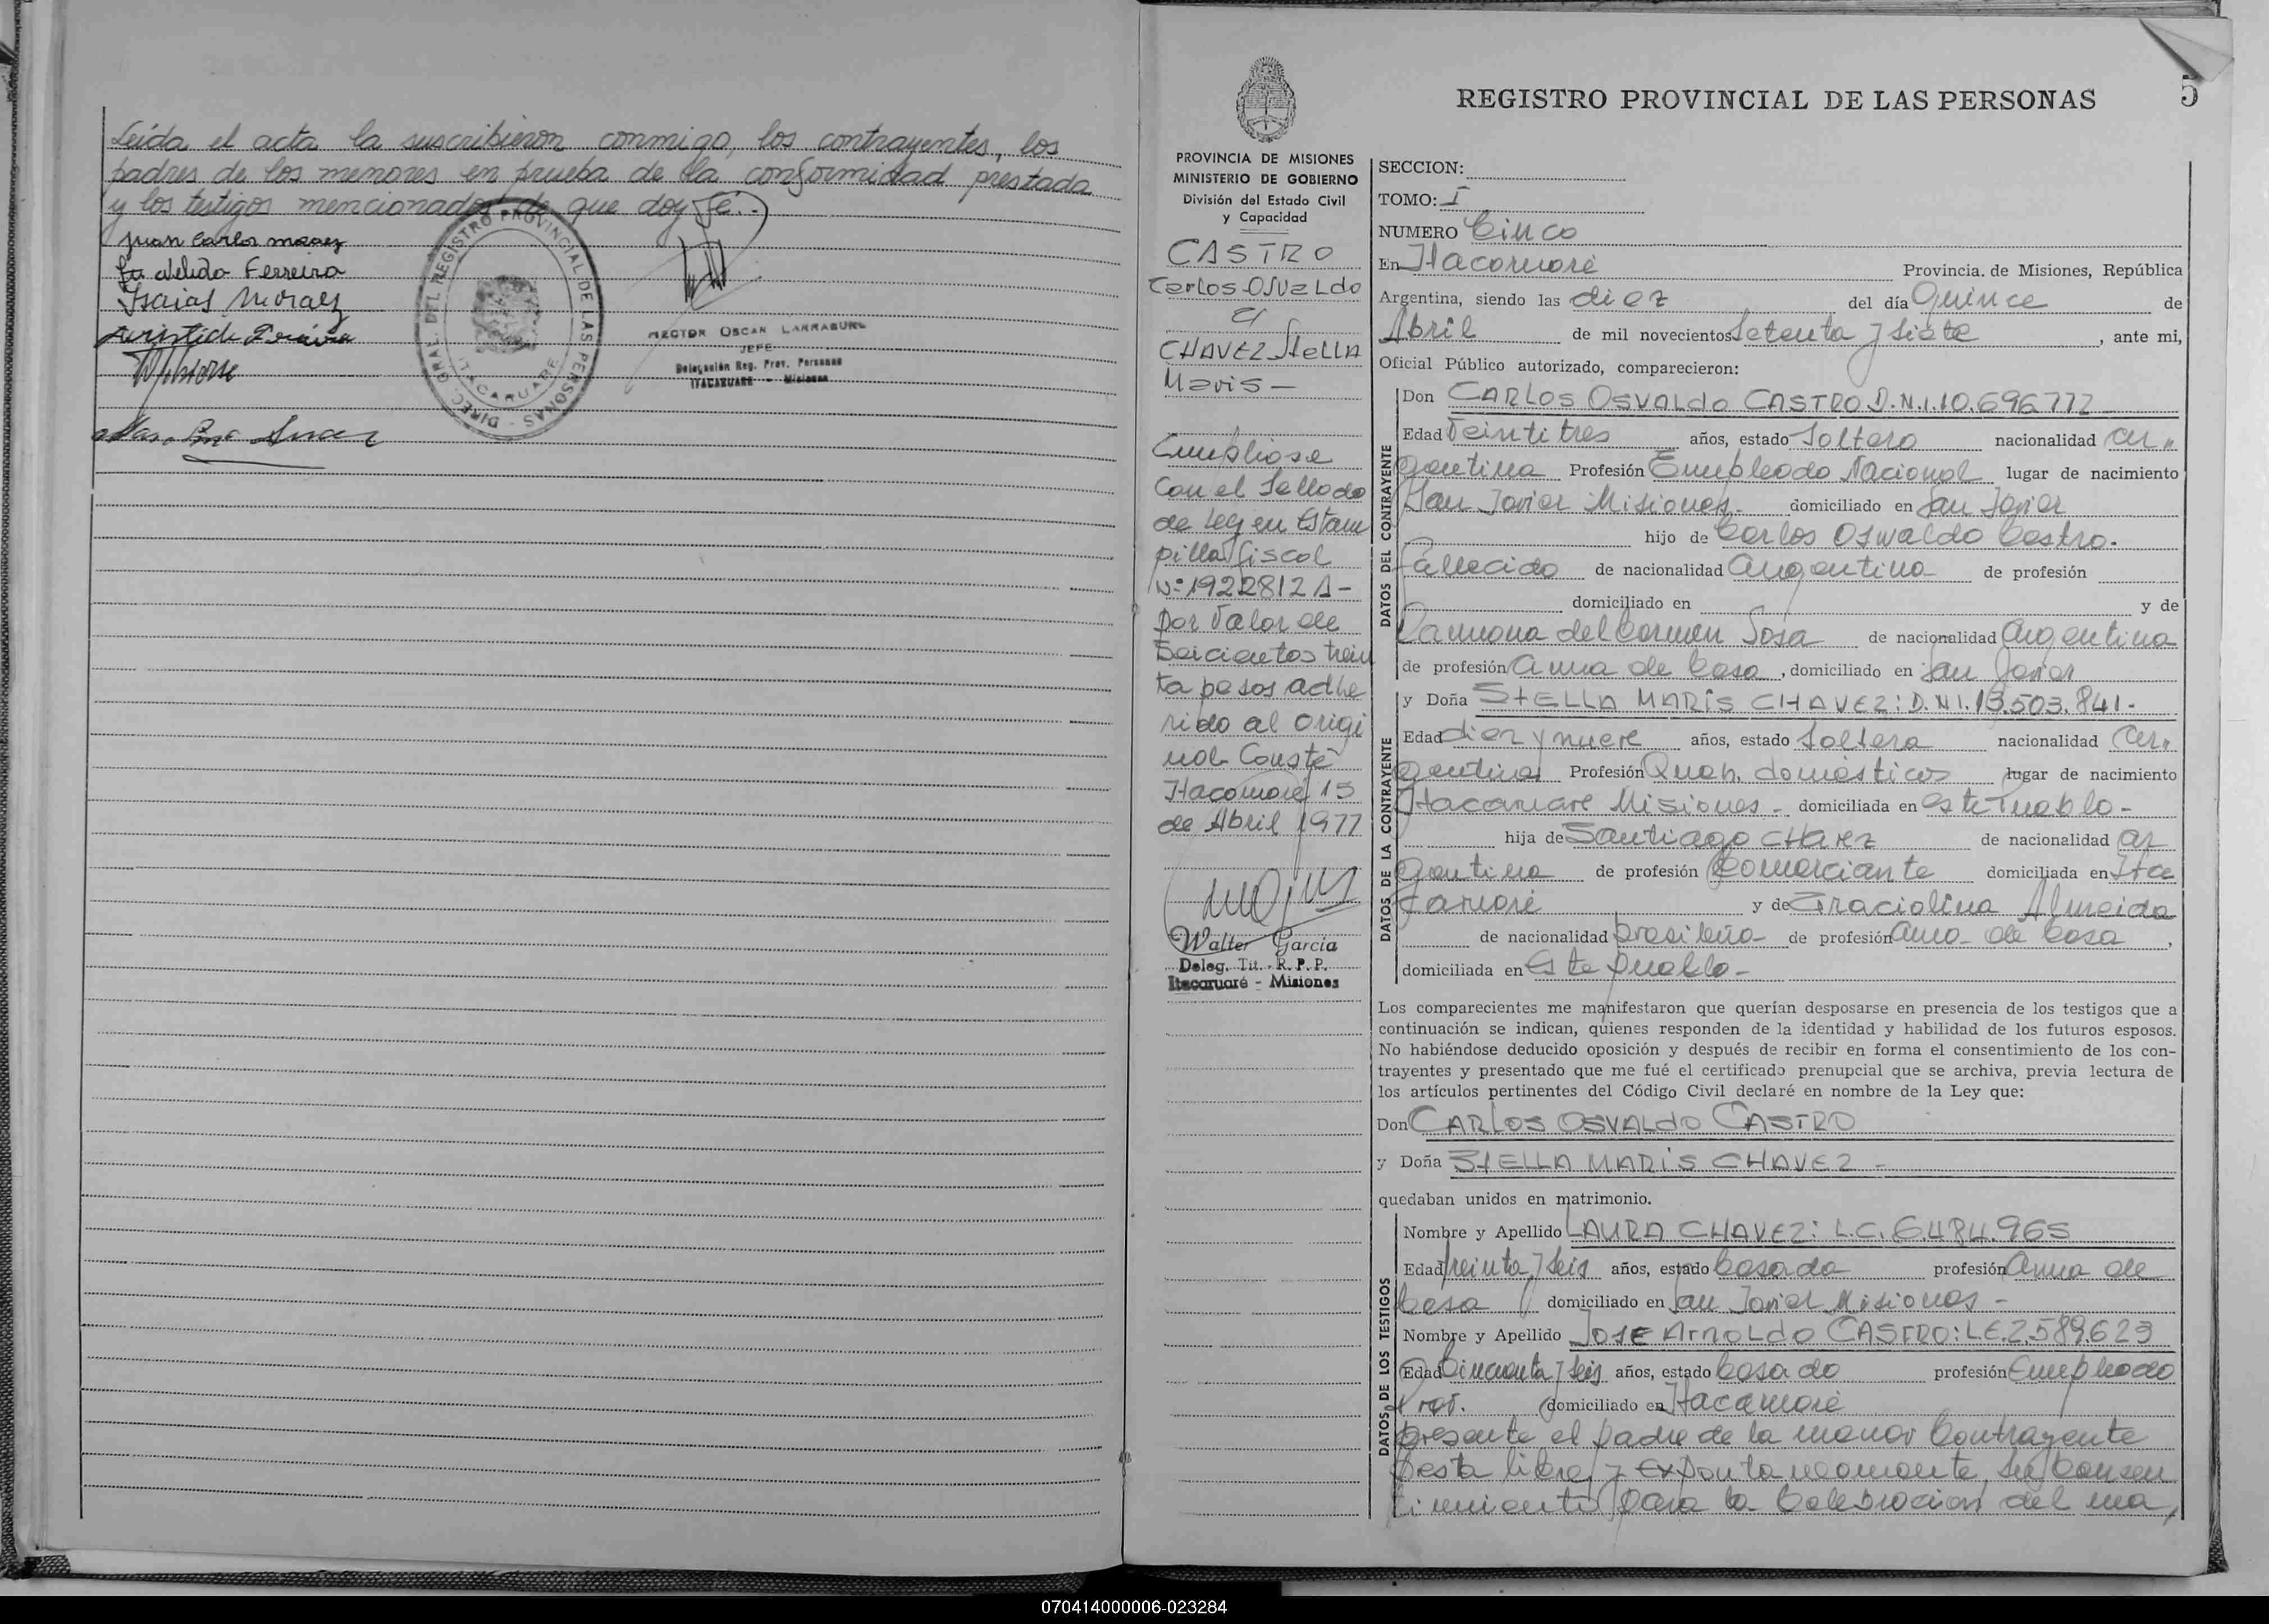 Leida el acta la suscribieron conmigo, los contrayentes, los
padres de los menores en prueba de la conformidad prestada
y los testigos mencionados de que doy fé.-
Juan Carlos
Ferreira
Isaias Moraez
DIREC. GRAL. DEL REGISTRO PROVINCIAL DE LAS PERSONAS
ITACARUARE
HECTOR OSCAR LARRABURE
JEFE
Delegación Reg. Prov. Personas
ITACARUARE - Misiones
5
REGISTRO PROVINCIAL DE LAS PERSONAS
PROVINCIA DE MISIONES
MINISTERIO DE GOBIERNO
División del Estado Civil
y Capacidad
CASTRO
Carlos OSVALdo
y
CHAVEZ StELLA
Maris -
Cumpliose
Con el Sellado
de Ley en Estam
pilla fiscal
Nº 1922812 A -
por Valor de
Seicientos trein
ta pesos adhe
rido al origi
nal Conste
Itacaruaré 15
de Abril 1977
Walter Garcia
Deleg. Tit. - R. P. P.
Itacaruaré - Misiones
SECCION:
TOMO: I
NUMERO Cinco
En Itacaruaré Provincia. de Misiones, República
Argentina, siendo las diez del día Quince de
Abril de mil novecientos Setenta y Siete, ante mi,
Oficial Público autorizado, comparecieron:
DATOS DEL CONTRAYENTE
Don CARLOS OSVALDO CASTRO D.N.I. 10.696.772
Edad Veintitres años, estado Soltero nacionalidad ar
gentina Profesión Empleado Nacional lugar de nacimiento
San Javier Misiones - domiciliado en San Javier
hijo de Carlos Oswaldo Castro.
fallecido de nacionalidad Argentina de profesión
domiciliado en y de
Ramona del Carmen Sosa de nacionalidad Argentina
de profesión ama de Casa, domiciliado en San Javier
DATOS DE LA CONTRAYENTE
y Doña StELLA MARIS CHAVEZ: D.N.I. 13.503.841-
Edad diez y nueve años, estado Soltera nacionalidad ar
gentina Profesión Queh. domésticos lugar de nacimiento
Itacaruaré Misiones - domiciliada en este Pueblo -
hija de Santiago CHavez de nacionalidad ar
gentina de profesión Comerciante domiciliada en Ita
caruaré y de Graciolina Almeida
de nacionalidad brasileña de profesión ama de Casa,
domiciliada en Este pueblo -
Los comparecientes me manifestaron que querían desposarse en presencia de los testigos que a
continuación se indican, quienes responden de la identidad y habilidad de los futuros esposos.
No habiéndose deducido oposición y después de recibir en forma el consentimiento de los con-
trayentes y presentado que me fué el certificado prenupcial que se archiva, previa lectura de
los artículos pertinentes del Código Civil declaré en nombre de la Ley que:
Don CARLOS OSVALdo CASTRO
y Doña StELLA MARIS CHAVEZ -
quedaban unidos en matrimonio.
DATOS DE LOS TESTIGOS
Nombre y Apellido LAURA CHAVEZ: L.C. 6.484.965
Edad treinta y Seis años, estado Casada profesión Ama de
Casa domiciliado en San Javier Misiones -
Nombre y Apellido JOSE ArnoLdo CASTRO: L.E. 2.589.623
Edad Cincuenta y Seis años, estado Casado profesión Empleado
Prov. domiciliado en Itacaruaré
presente el padre de la menor Contrayente
presta libre y Expontaneamente su Consen
timiento para la Celebracion del ma,
070414000006-023284